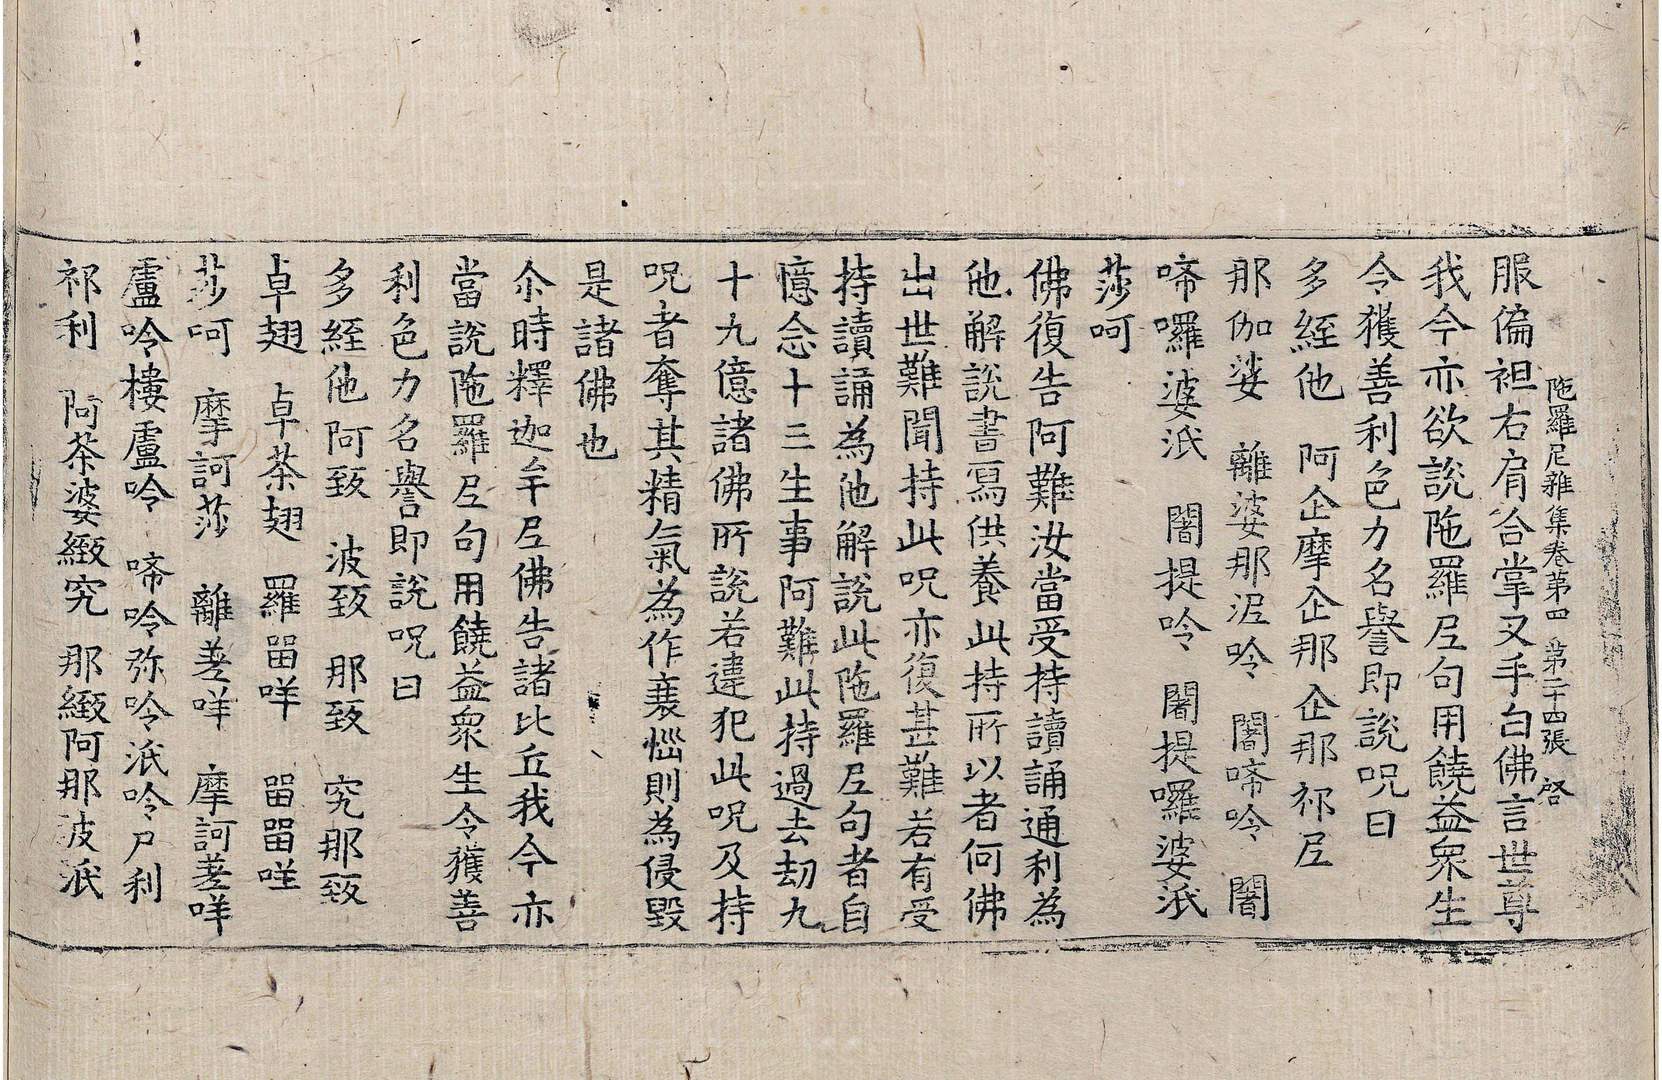 陁羅尼雜集卷第四　第二十四張　啓
服偏袒右肩合掌叉手白佛言世尊
我今亦欲說陁羅尼句用饒益衆生
令獲善利色力名譽即說呪曰
多絰他　阿企摩企那企那祁尼
那伽婆　離婆那泥呤　闍啼呤　闍
啼囉婆派　闍提呤　闍提囉婆派
莎呵
佛復告阿難汝當受持讀誦通利為
他解說書寫供養此持所以者何佛
出世難聞持此呪亦復甚難若有受
持讀誦為他解說此陁羅尼句者自
憶念十三生事阿難此持過去劫九
十九億諸佛所說若違犯此呪及持
呪者奪其精氣為作衰惱則為侵毀
是諸佛也
尒時釋迦牟尼佛告諸比丘我今亦
當說陁羅尼句用饒益衆生令獲善
利色力名譽即說呪曰
多絰他阿致　波致　那致　究那致
卓翅　卓茶翅　羅留咩　留留咩
莎呵　摩訶莎　離差咩　摩訶差咩
盧呤樓盧呤　啼呤弥呤派呤尸利
祁利　阿茶婆緻究　那緻阿那波派